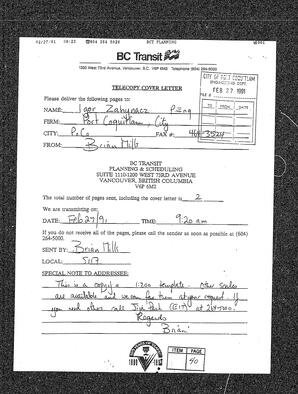 02/27/91 09:23 604 264 5029 BCT PLANNING 001
BC Transit
1200 West 73rd Avenue, Vancouver, B.C. V6P 6M2 Telephone (604) 264-5000
TELECOPY COVER LETTER
CITY OF PORT COQUITLAM
ENGINEERING DEPT
FEB 27 1991
FILE #
TO FROM DATE
Please deliver the following pages to:
NAME: Igor Zahynacz P.Eng
FIRM: Port Coquitlam, City
CITY: PoCo FAX #: 464-3524
FROM: Brian Mills
BC TRANSIT
PLANNING & SCHEDULING
SUITE 1110-1200 WEST 73RD AVENUE
VANCOUVER, BRITISH COLUMBIA
V6P 6M2
The total number of pages sent, including the cover letter is 2
We are transmitting on:
DATE: Feb 27/91 TIME: 9:20 am
If you do not receive all of the pages, please call the sender as soon as possible at (604)
264-5000.
SENT BY: Brian Mills
LOCAL:
SPECIAL NOTE TO ADDRESSEE:
This is a copy of a 1:200 template. Other scales
are available and we can fax them at your request. If
you need others call Jim (E.I.T) at 264-5000.
Regards
Brian
ITEM PAGE
40